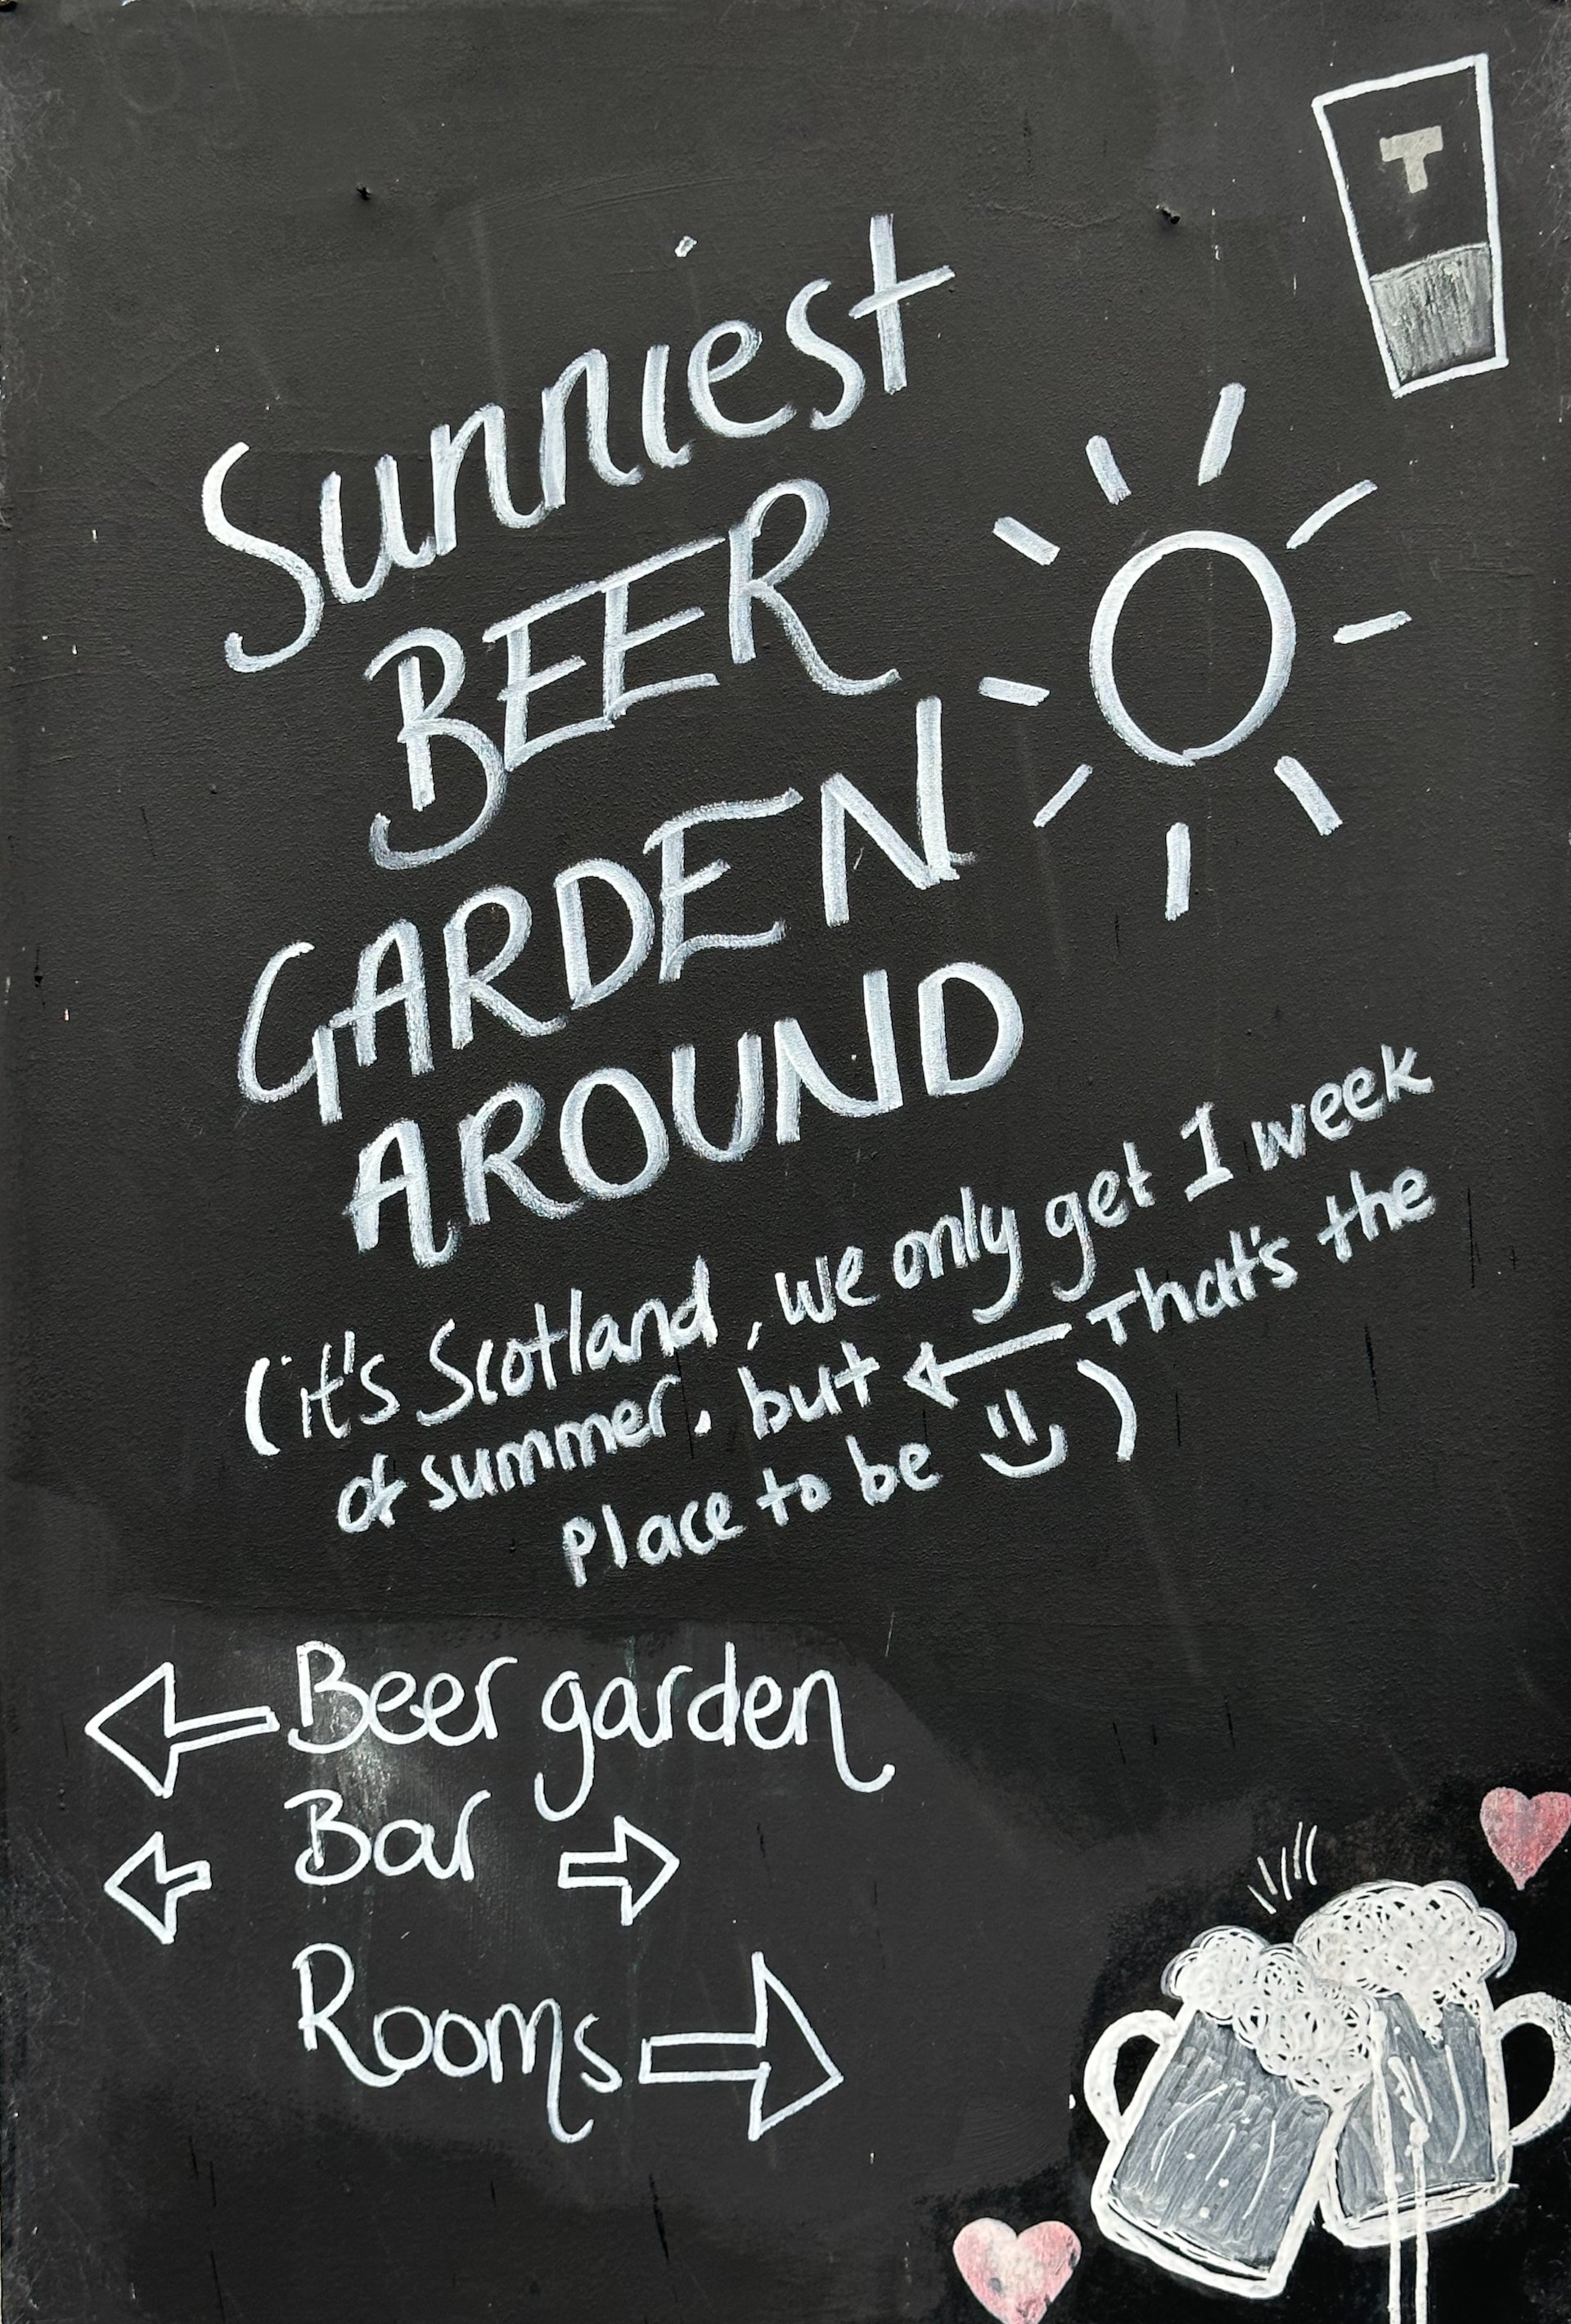 T
Sunniest
BEER
GARDEN
AROUND
(it's Scotland, we only get 1 week
of summer. but ← That's the
place to be :))
← Beer garden
← Bar →
Rooms →